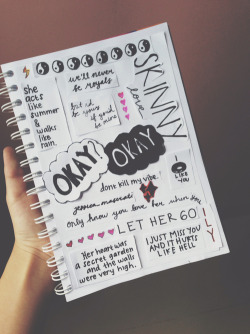 she
acts
like
summer
& walks
like
rain.
we'll never
be royals
but i'd be
yours if you'd
be mine
SKINNY
love
OKAY?
OKAY
I
LIKE
YOU
dont kill my vibe.
only know you love her when
LET HER GO
I JUST MISS YOU
AND IT HURTS
LIKE HELL
Her heart was
a secret garden
and the walls
were very high.